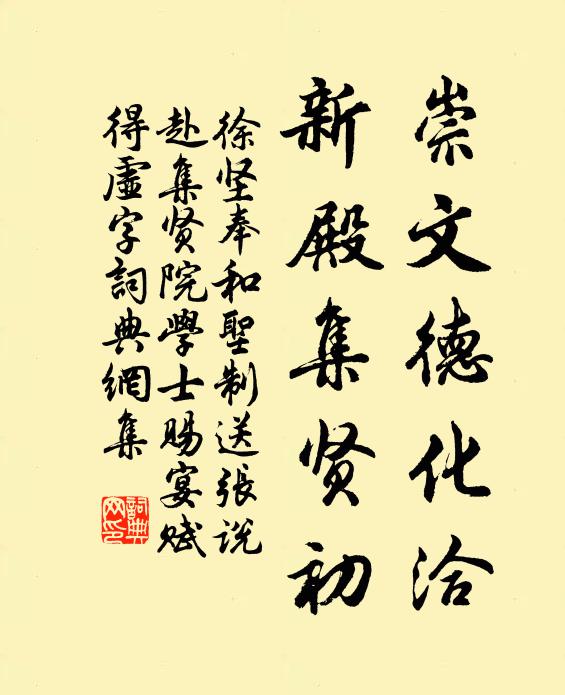 崇文德化洽
新殿集贤初
徐坚奉和聖制送張说
赴集贤院學士赐宴赋
得虛字詞典網集
詞典
网印